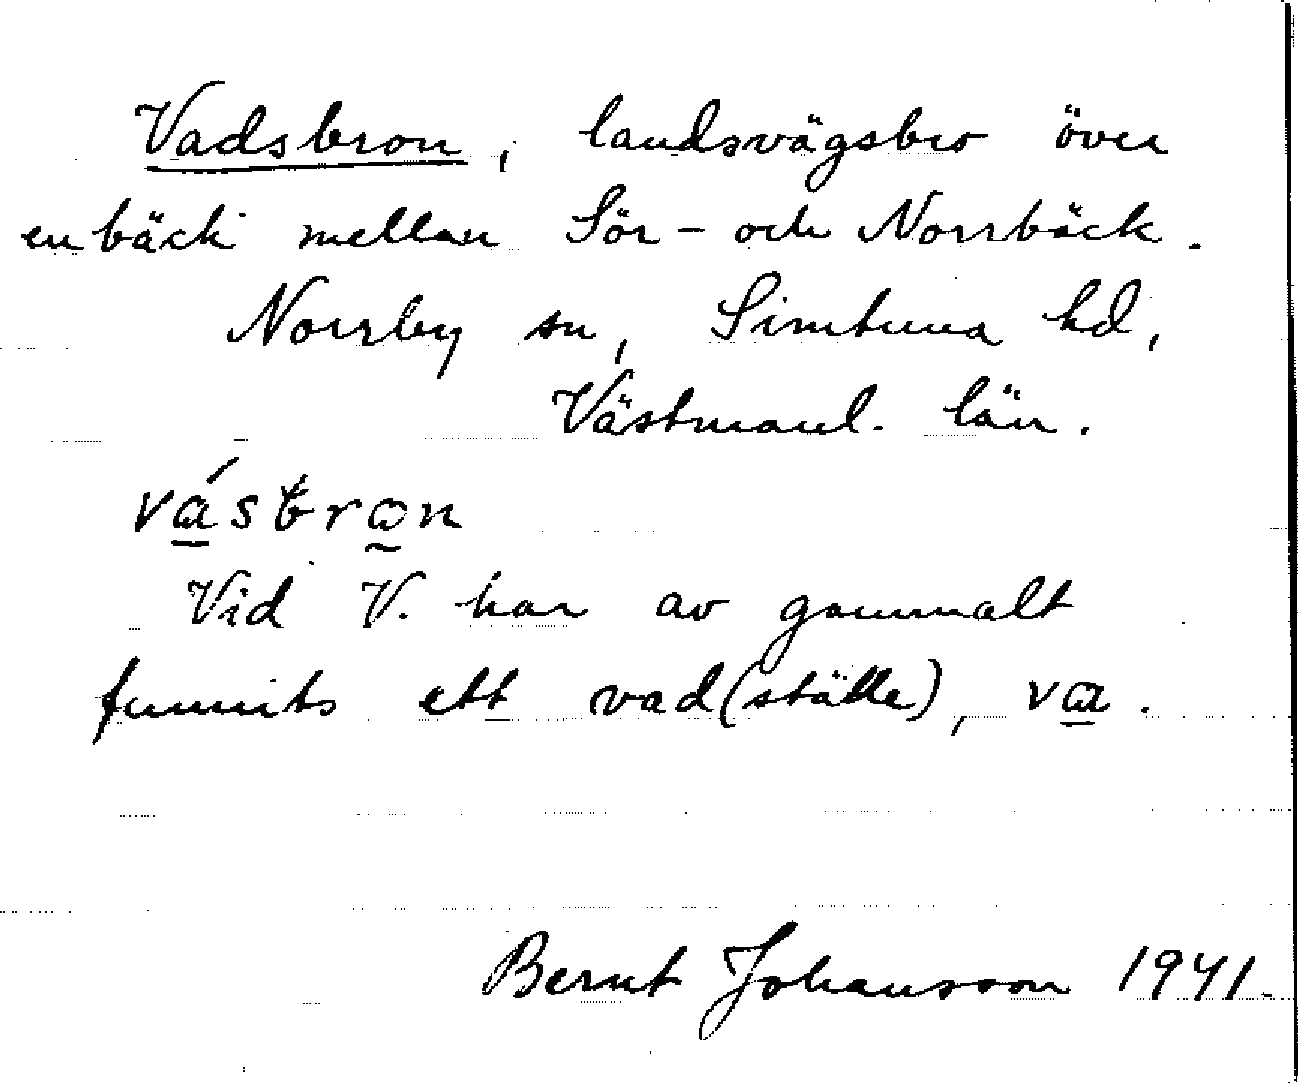 Vadsbron, landsvägsbro över
en bäck mellan Sör- och Norrbäck.
Norrby sn, Simtuna hd,
Västmanl. län.
vástrωn
Vid V. har av gammalt
funnits ett vad(ställe), va.
Bernt Johansson 1941.